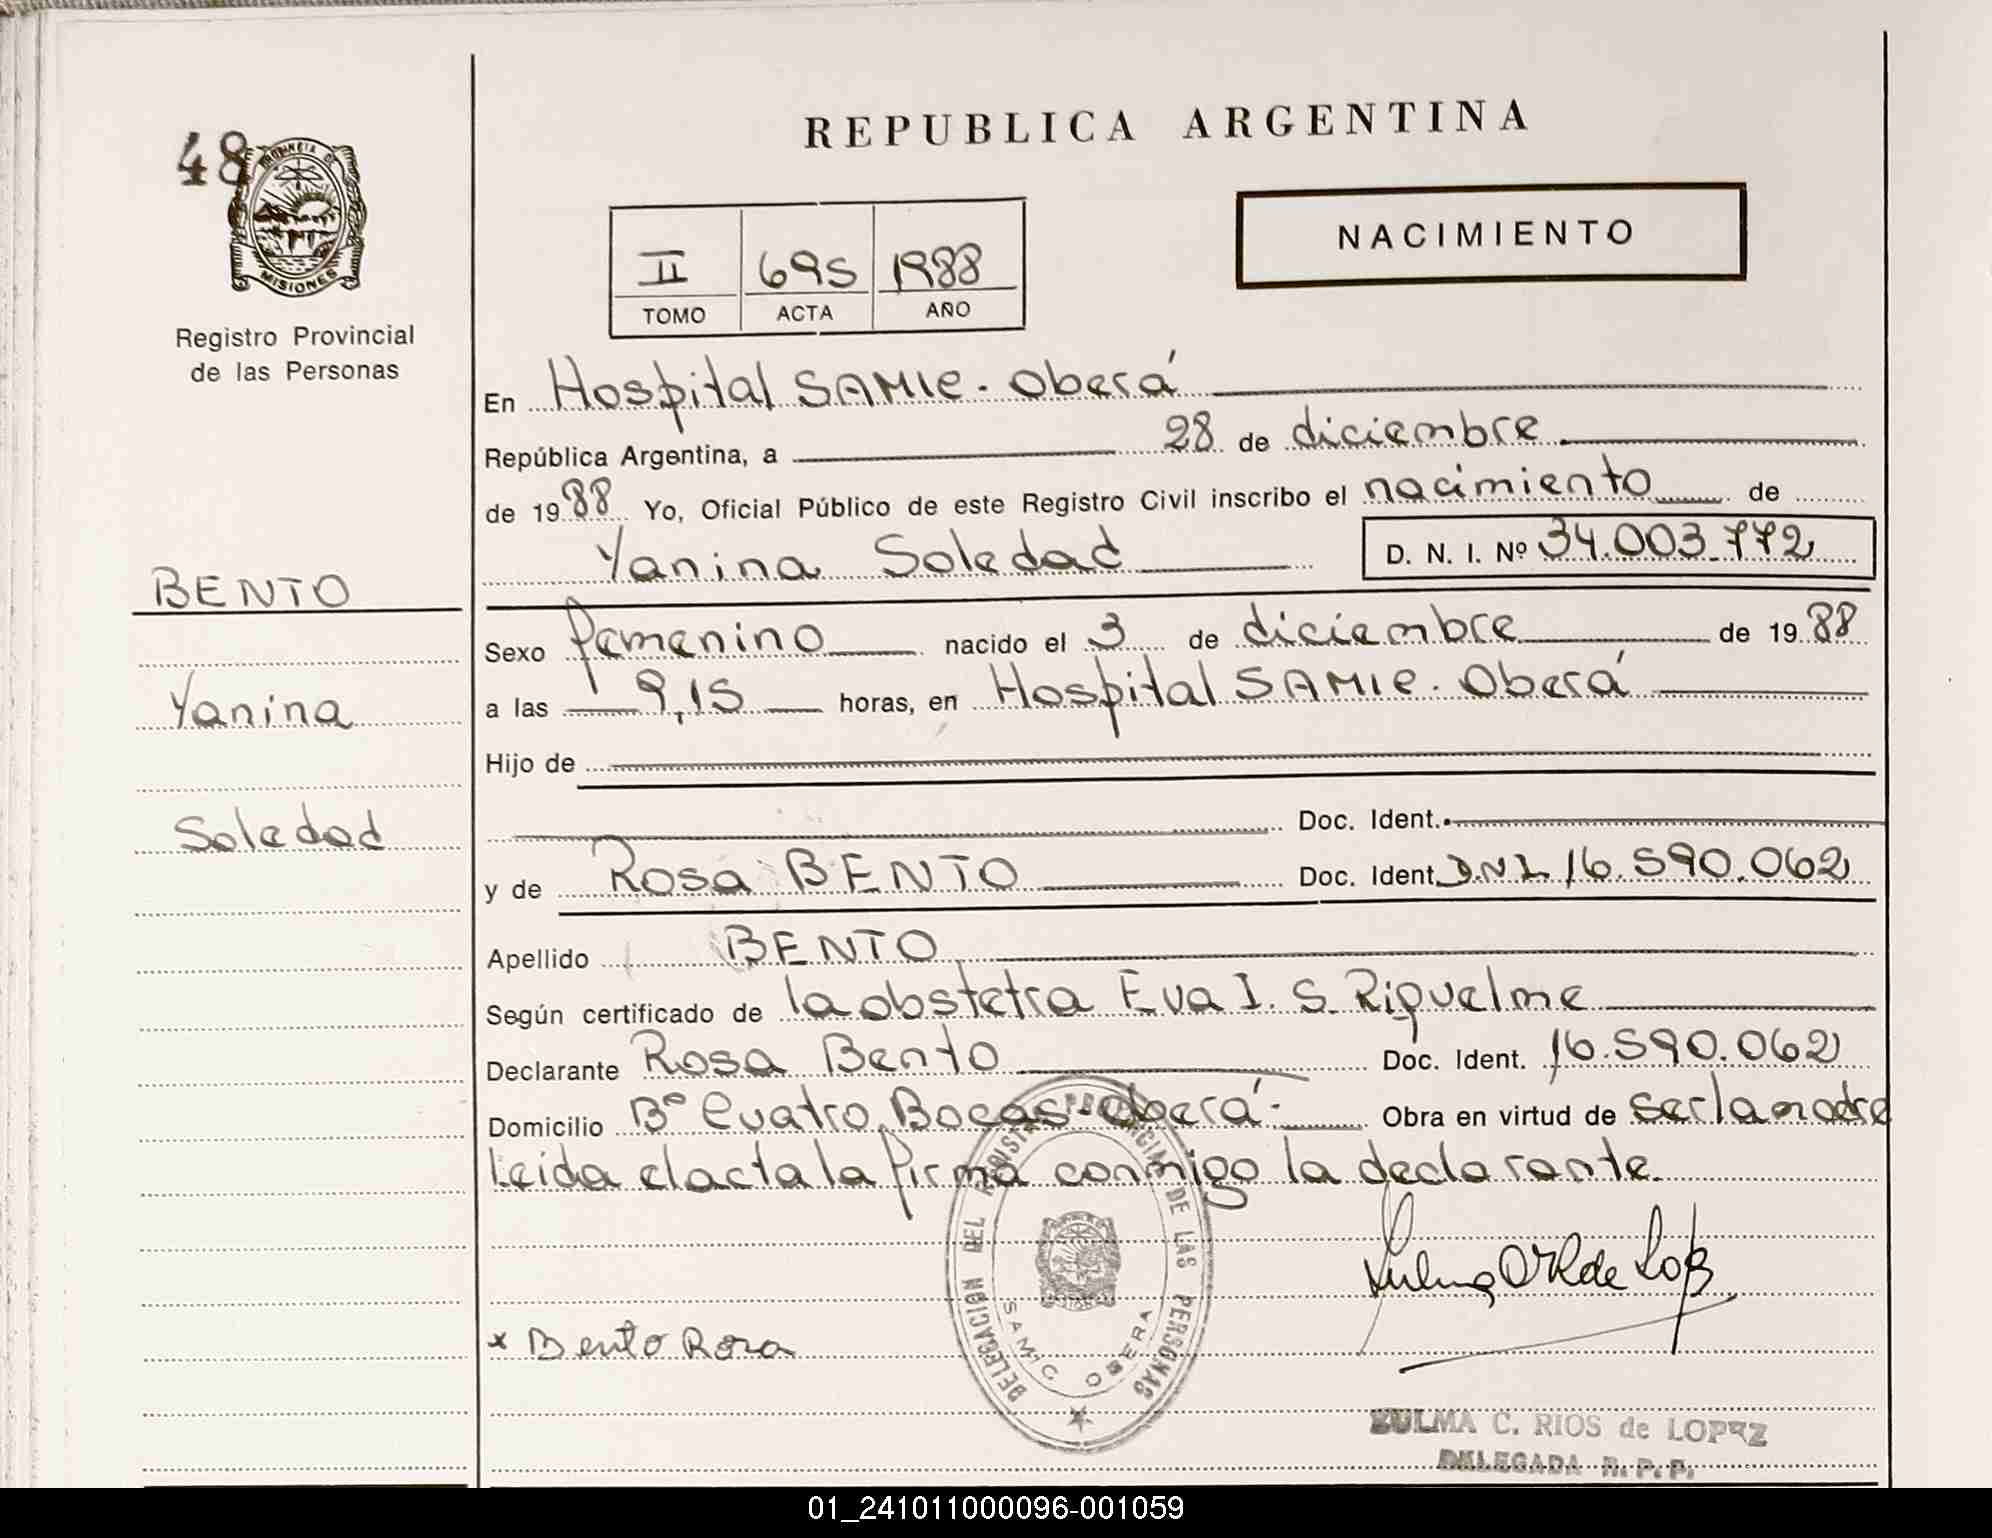 48
PROVINCIA DE
MISIONES
Registro Provincial
de las Personas
BENTO
Yanina
Soledad
REPUBLICA ARGENTINA
II 695 1988
TOMO ACTA AÑO
NACIMIENTO
En Hospital SAMIC - Oberá
República Argentina, a 28 de diciembre
de 1988 Yo, Oficial Público de este Registro Civil inscribo el nacimiento de
Yanina Soledad D. N. I. Nº 34.003.772
Sexo femenino nacido el 3 de diciembre de 1988
a las 9,15 horas, en Hospital SAMIC - Oberá
Hijo de
Doc. Ident.
y de Rosa BENTO Doc. Ident. DNI 16.590.062
Apellido BENTO
Según certificado de la obstetra Eva I. S. Riquelme
Declarante Rosa Bento Doc. Ident. 16.590.062
Domicilio Bº Cuatro Bocas - Oberá - Obra en virtud de ser la madre
Leida el acta la firma conmigo la declarante.
DELEGACION DEL REGISTRO PROVINCIAL DE LAS PERSONAS
SAMIC OBERA
x Bento Rosa
ZULMA C. RIOS de LOPEZ
DELEGADA R. P. P.
01_241011000096-001059